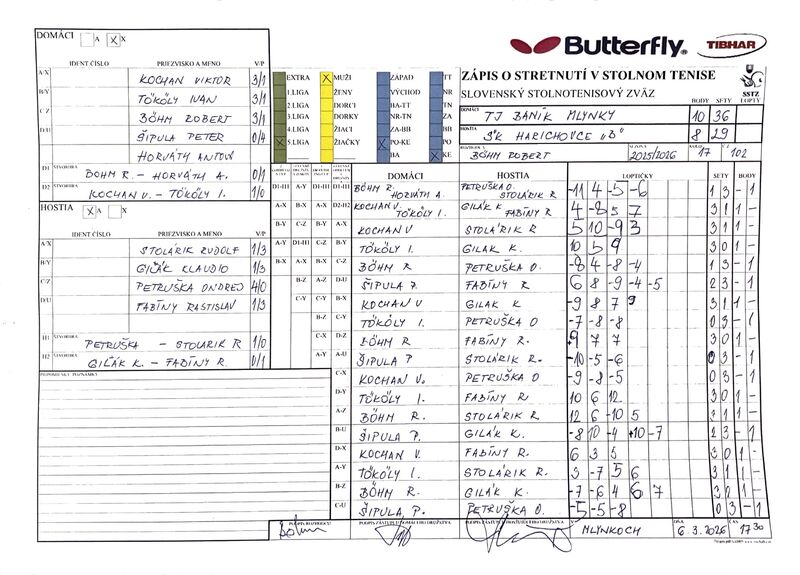 DOMÁCI A X X
IDENT.ČÍSLO PRIEZVISKO A MENO V/P
A/X KOCHAN VIKTOR 3/1
B/Y TÖKÖLY IVAN 3/1
C/Z BÖHM ROBERT 3/1
D/U ŠIPULA PETER 0/4
HORVÁTH ANTON
D1 ŠTVORHRA BÖHM R. - HORVÁTH A. 0/1
D2 ŠTVORHRA KOCHAN V. - TÖKÖLY I. 1/0
HOSTIA X A X
IDENT.ČÍSLO PRIEZVISKO A MENO V/P
A/X STOLÁRIK RUDOLF 1/3
B/Y GIĽÁK KLAUDIO 1/3
C/Z PETRUŠKA ONDREJ 4/0
D/U FABÍNY RASTISLAV 1/3
H1 ŠTVORHRA PETRUŠKA - STOLÁRIK R 1/0
H2 ŠTVORHRA GIĽÁK K. - FABÍNY R. 0/1
PRIPOMIENKY, POZNÁMKY
Butterfly TIBHAR
EXTRA X MUŽI ZÁPAD TT
1.LIGA ŽENY VÝCHOD NR
2.LIGA DORCI BA-TT TN
3.LIGA DORKY NR-TN ZA
4.LIGA ŽIACI ZA-BB BB
X 5.LIGA ŽIAČKY X PO-KE PO
BA X KE
ZÁPIS O STRETNUTÍ V STOLNOM TENISE
SLOVENSKÝ STOLNOTENISOVÝ ZVÄZ
SSTZ
BODY SETY LOPTY
DOMÁCI TJ BANÍK MLYNKY 10 36
HOSTIA SK HARICHOVCE "B" 8 29
BÖHM ROBERT SEZÓNA 2025/2026 KOLO 17 Č. 102
DOMÁCI HOSTIA LOPTIČKY SETY BODY
D1-H1 A-Y D1-H1 D1-H1 BÖHM R. HORVÁTH A. PETRUŠKA O. STOLÁRIK R -11 4 -5 -6 1 3 - 1
A-X B-X D2-H2 KOCHAN V. TÖKÖLY I. GIĽÁK K FABÍNY R 4 -8 5 7 3 1 1 -
B-Y C-Z B-Y A-X KOCHAN V STOLÁRIK R 5 10 -9 3 3 1 1 -
A-Y D1-H1 C-Z B-Y TÖKÖLY I. GIĽÁK K. 10 5 9 3 0 1 -
B-X A-X B-X C-Z BÖHM R PETRUŠKA O. -8 4 -8 -4 1 3 - 1
B-Z A-Z D-U ŠIPULA P. FABÍNY R 6 8 -9 -4 -5 2 3 - 1
C-Y C-Y B-X KOCHAN V GIĽÁK K -9 8 7 9 3 1 1 -
C-Z TÖKÖLY I. PETRUŠKA O -7 -8 -8 0 3 - 1
C-X D-Z BÖHM R FABÍNY R. 9 7 7 3 0 1 -
A-Y A-U ŠIPULA P STOLÁRIK R. -10 -5 -6 0 3 - 1
C-X KOCHAN V. PETRUŠKA O -9 -8 -5 0 3 - 1
TÖKÖLY I. FABÍNY R 10 6 12 3 0 1 -
A-Z BÖHM R. STOLÁRIK R 12 6 -10 5 3 1 1 -
B-U ŠIPULA P. GIĽÁK K. -8 10 -4 10 -7 2 3 - 1
D-X KOCHAN V. FABÍNY R. 6 3 5 3 0 1 -
A-Y TÖKÖLY I. STOLÁRIK R. 3 -7 5 6 3 1 1 -
B-Z BÖHM R. GIĽÁK K. -7 -6 4 6 7 3 2 1 -
C-U ŠIPULA P. PETRUŠKA O. -5 -5 -8 0 3 - 1
PODPIS ROZHODCU PODPIS ZÁSTUPCU DOMÁCEHO DRUŽSTVA PODPIS ZÁSTUPCU HOSŤUJÚCEHO DRUŽSTVA V MLYNKOCH DŇA 6.3.2026 ČAS 17 30